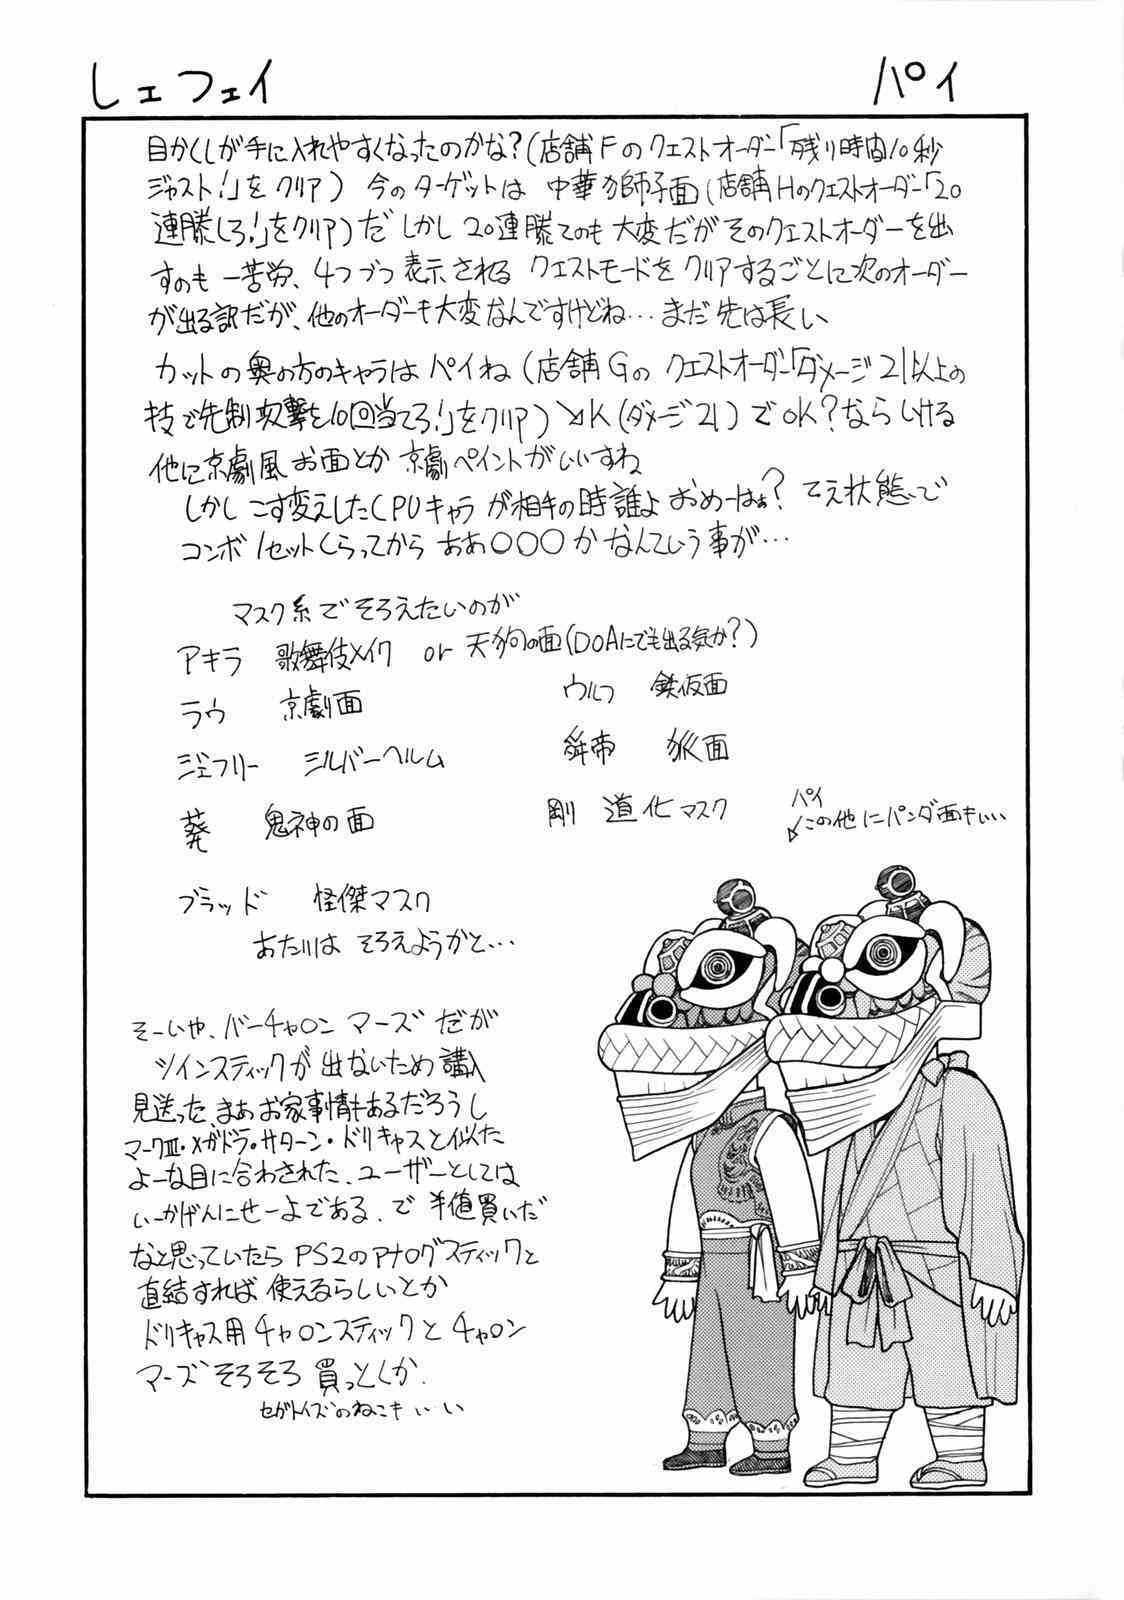 しェフェイ
パイ
目かくしが手に入れやすくなったのかな?(店舗Fのクエストオーダー「残り時間10秒
ジャスト!」をクリア) 今のターゲットは 中華獅子面(店舗Hのクエストオーダー「20
連勝しろ!」をクリア)だ しかし20連勝てのも大変だがそのクエストオーダーを出
すのも一苦労、4つづつ表示される クエストモードをクリアするごとに次のオーダー
が出る訳だが、他のオーダーも大変なんですけどね…まだ先は長い
カットの奥の方のキャラはパイね(店舗Gのクエストオーダー「ダメージ21以上の
技で先制攻撃を10回当てろ!」をクリア)↘K(ダメージ21)でOK?ならいける
他に京劇風お面とか 京劇ペイントがいいすね
しかし こす変えしたCPUキャラが相手の時誰よ おめーはぁ? てえ状態で
コンボ1セットくらってから ああ〇〇〇かなんていう事が…
マスク系でそろえたいのが
アキラ 歌舞伎メイク or 天狗の面(DOAにでも出る気か?)
ラウ 京劇面
ウルフ 鉄仮面
ジェフリー シルバーヘルム
舜帝 狐面
葵 鬼神の面
剛 道化マスク
パイ
この他にパンダ面もいい
ブラッド 怪傑マスク
あたりは そろえようかと…
そーいや、バーチャロン マーズ だが
ツインスティックが出ないため購入
見送った、まあお家事情もあるだろうし
マークⅢ・メガドラ・サターン・ドリキャスと似た
よーな目に合わされた、ユーザーとしては
いーかげんにせーよである、で 半値買いだ
なと思っていたら PS2のアナログスティックと
直結すれば使えるらしいとか
ドリキャス用 チャロンスティックと チャロン
マーズ そろそろ 買っとくか、
セガトイズのねこもいい